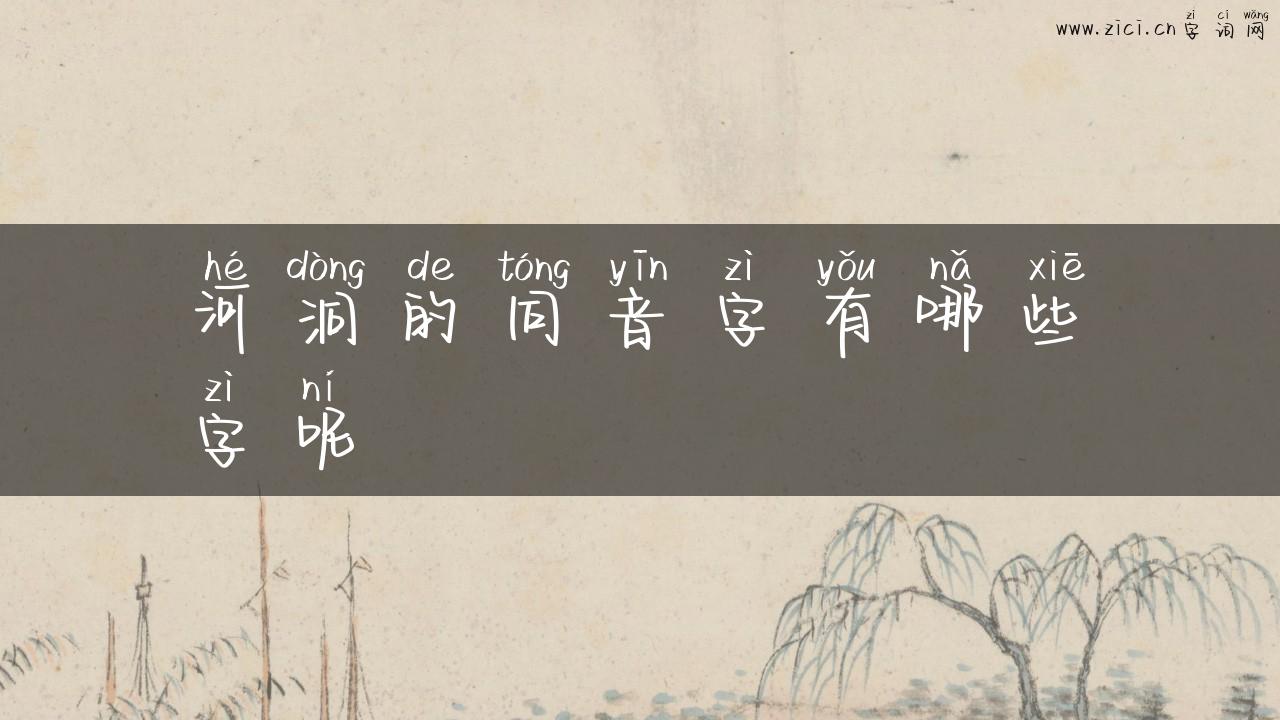 zì cí wǎng
www.zici.cn 字 词 网
hé dòng de tóng yīn zì yǒu nǎ xiē
河 洞 的 同 音 字 有 哪 些
zì ní
字 呢